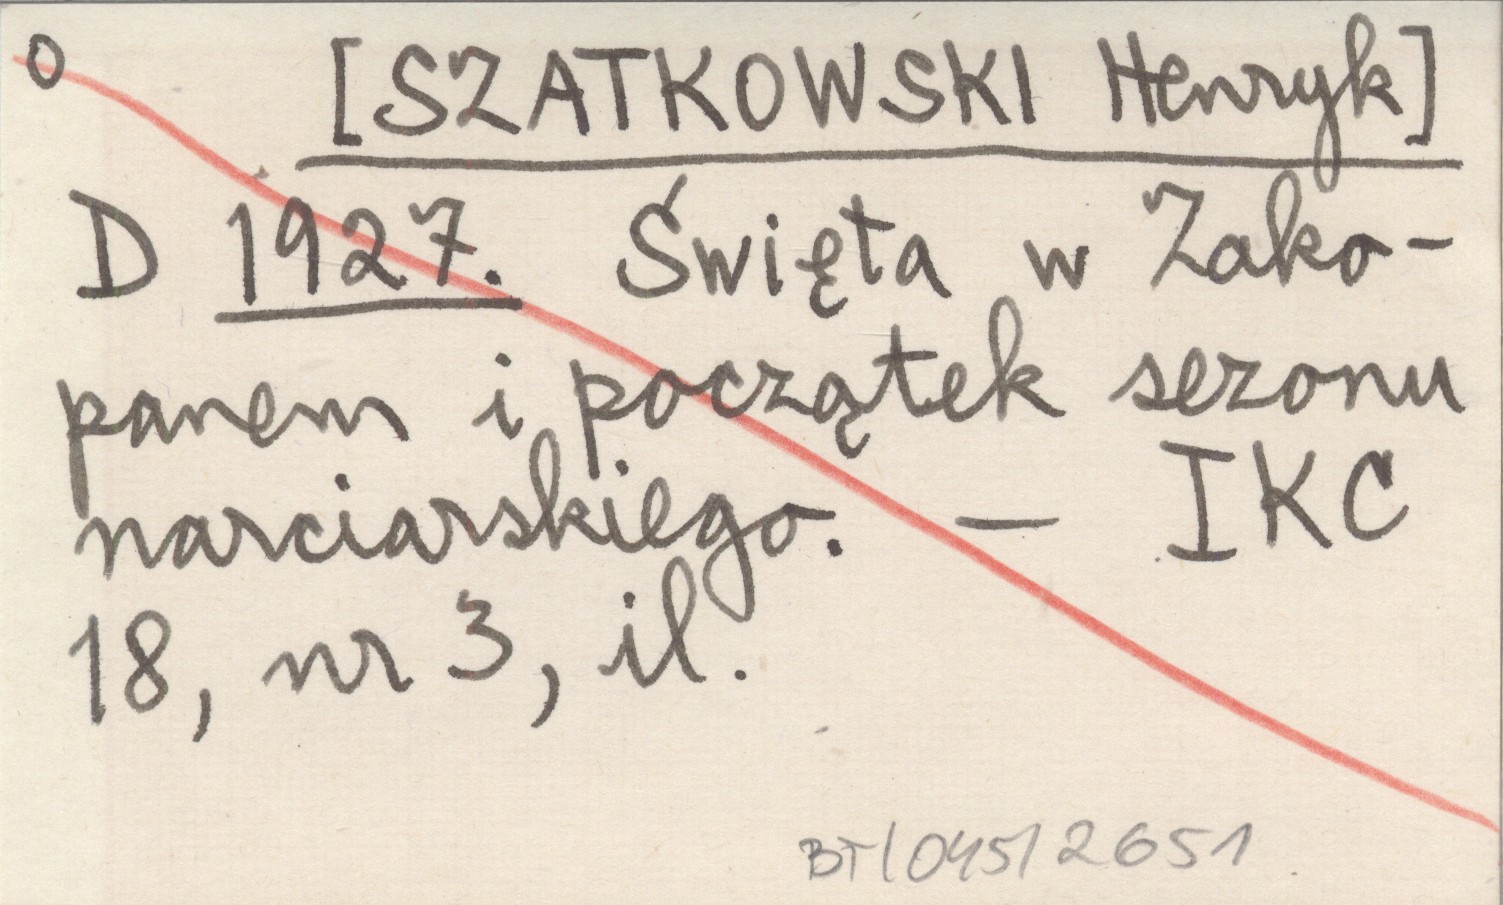 o [SZATKOWSKI Henryk]
D 1927. Święta w Zako-
panem i początek sezonu
narciarskiego. — IKC
18, nr 3, il.
BT/045/2651